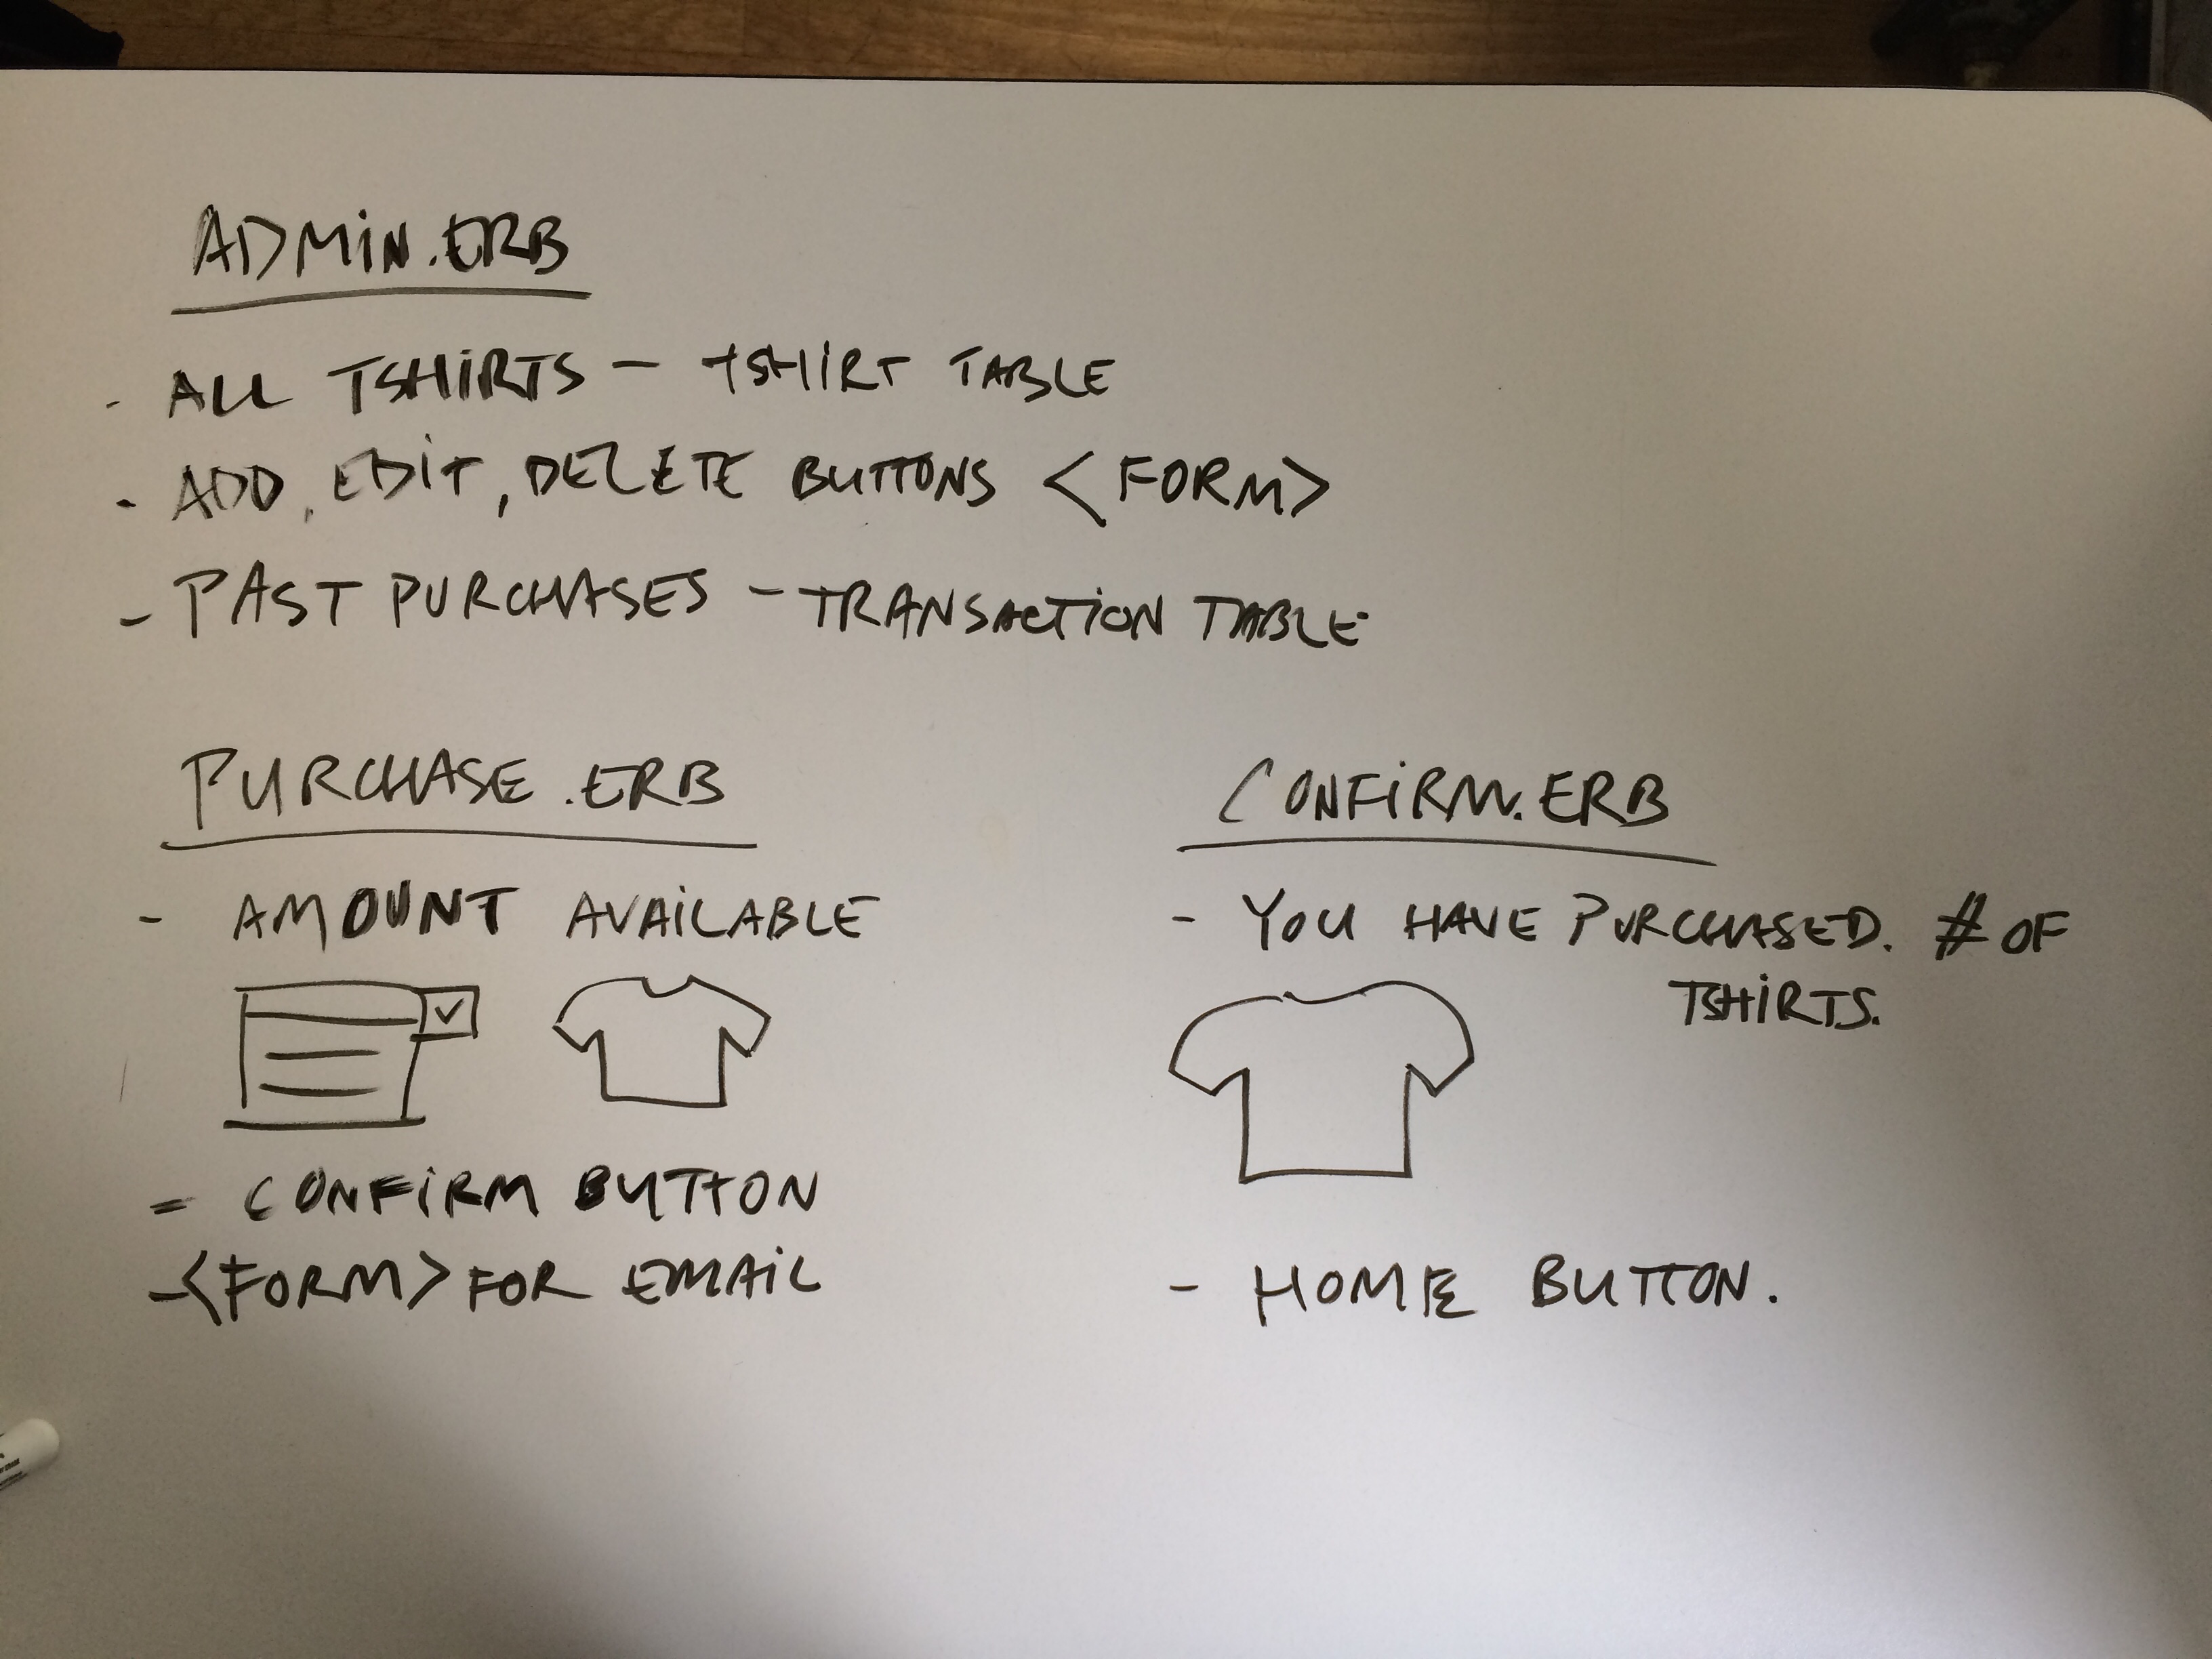 ADMIN.ERB
- ALL TSHIRTS - TSHIRT TABLE
- ADD, EDIT, DELETE BUTTONS <FORM>
- PAST PURCHASES - TRANSACTION TABLE
PURCHASE.ERB
- AMOUNT AVAILABLE
= CONFIRM BUTTON
-<FORM> FOR EMAIL
CONFIRM.ERB
- YOU HAVE PURCHASED. # OF
TSHIRTS.
- HOME BUTTON.